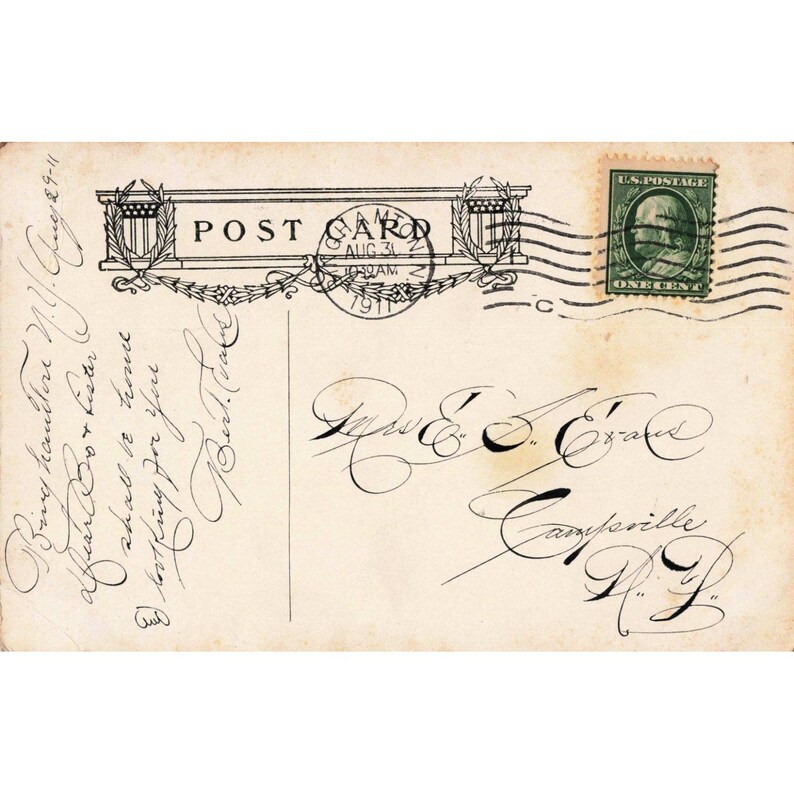 POST CARD
BINGHAMTON, N.Y.
AUG 31
1030AM
1911
C
U.S. POSTAGE
ONE CENT
Binghamton N.Y. Aug 29-11
Dear Bro & Sister
shall be home
and looking for you
Bert. Evans
Mrs E. S. Evans
Campville
N. Y.